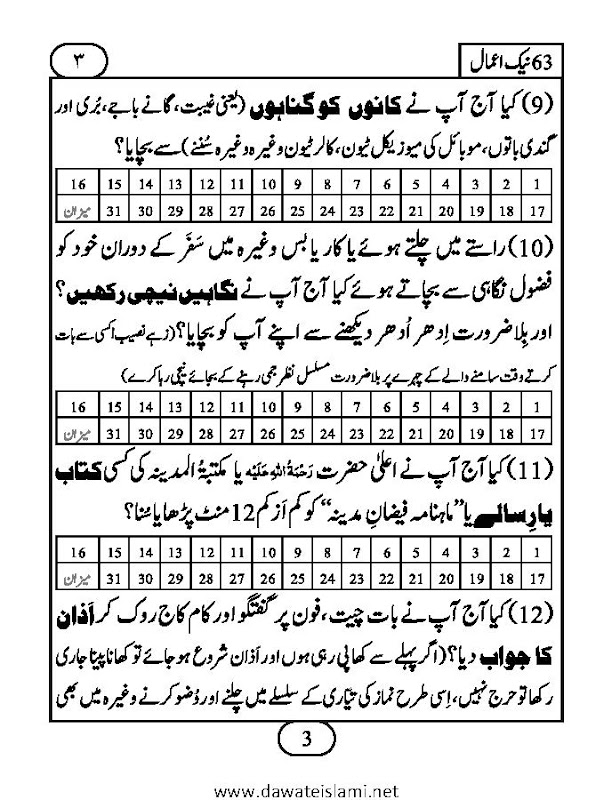 63 نیک اعمال
۳
(9) کیا آج آپ نے کانوں کو گناہوں (یعنی غیبت، گانے باجے، بُری اور
گندی باتوں، موبائل کی میوزیکل ٹیون، کالر ٹیون وغیرہ وغیرہ سُننے) سے بچایا؟
1 2 3 4 5 6 7 8 9 10 11 12 13 14 15 16
17 18 19 20 21 22 23 24 25 26 27 28 29 30 31 میزان
(10) راستے میں چلتے ہوئے یا کار یا بس وغیرہ میں سَفَر کے دوران خود کو
فضول نگاہی سے بچاتے ہوئے کیا آج آپ نے نگاہیں نیچی رکھیں؟
اور بِلا ضرورت اِدھر اُدھر دیکھنے سے اپنے آپ کو بچایا؟ (زہے نصیب! کسی سے بات
کرتے وقت سامنے والے کے چہرے پر بلا ضرورت مسلسل نظر جمی رہنے کے بجائے نیچی رہا کرے)
1 2 3 4 5 6 7 8 9 10 11 12 13 14 15 16
17 18 19 20 21 22 23 24 25 26 27 28 29 30 31 میزان
(11) کیا آج آپ نے اعلیٰ حضرت رَحْمَۃُ اللہِ عَلَیْہ یا مکتبۃُ المدینہ کی کسی کتاب
یا رِسالے یا ”ماہنامہ فیضانِ مدینہ“ کو کم اَز کم 12 منٹ پڑھا یا سُنا؟
1 2 3 4 5 6 7 8 9 10 11 12 13 14 15 16
17 18 19 20 21 22 23 24 25 26 27 28 29 30 31 میزان
(12) کیا آج آپ نے بات چیت، فون پر گفتگو اور کام کاج روک کر اَذان
کا جواب دیا؟ (اگر پہلے سے کھا پی رہی ہوں اور اَذان شروع ہو جائے تو کھانا پینا جاری
رکھا تو حرج نہیں، اِسی طرح نماز کی تیاری کے سلسلے میں چلنے اور وُضو کرنے وغیرہ میں بھی
3
www.dawateislami.net